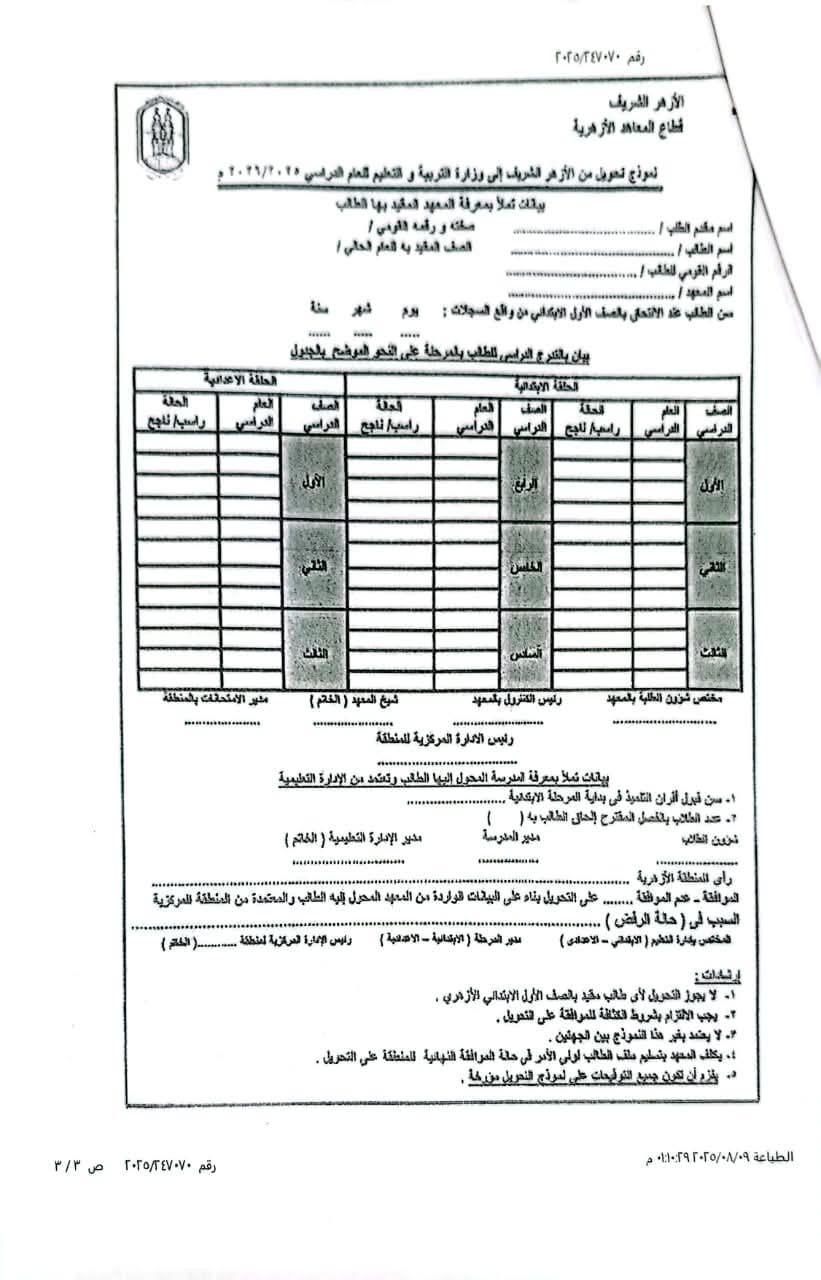 رقم ٢٠٢٥/٢٤٧٠٧٠
الأزهر الشريف
قطاع المعاهد الأزهرية
نموذج تحويل من الأزهر الشريف إلى وزارة التربية و التعليم للعام الدراسي ٢٠٢٦/٢٠٢٥ م
بيانات تملأ بمعرفة المعهد المقيد بها الطالب
اسم مقدم الطلب / .................................... صفته و رقمه القومي /
اسم الطالب / .................................... الصف المقيد به العام الحالي /
الرقم القومي للطالب / ....................................
اسم المعهد / ....................................
سن الطالب عند الالتحاق بالصف الأول الابتدائي من واقع السجلات : يوم شهر سنة
..... ..... ......
بيان بالتدرج الدراسي للطالب بالمرحلة على النحو الموضح بالجدول
الحلقة الابتدائية الحلقة الاعدادية
الصف الدراسي العام الدراسي الحالة راسب/ ناجح الصف الدراسي العام الدراسي الحالة راسب/ ناجح الصف الدراسي العام الدراسي الحالة راسب/ ناجح
الأول الرابع الأول
الثاني الخامس الثاني
الثالث السادس الثالث
مختص شئون الطلبة بالمعهد رئيس الكنترول بالمعهد شيخ المعهد ( الخاتم ) مدير الامتحانات بالمنطقة
.................... .................... .................... ....................
رئيس الادارة المركزية للمنطقة
....................................
بيانات تملأ بمعرفة المدرسة المحول إليها الطالب وتعتمد من الإدارة التعليمية
١- سن قبول أقران التلميذ فى بداية المرحلة الابتدائية .........................
٢- عدد الطلاب بالفصل المقترح إلحاق الطالب به ( )
شئون الطلاب مدير المدرسة مدير الإدارة التعليمية ( الخاتم )
.................... ............... ............................
رأي المنطقة الأزهرية ........................................................................
الموافقة - عدم الموافقة ........ على التحويل بناء على البيانات الواردة من المعهد المحول إليه الطالب والمعتمدة من المنطقة المركزية
السبب فى ( حالة الرفض ) ........................................................................
المختص بإدارة التعليم ( الابتدائي - الاعدادى ) مدير المرحلة ( الابتدائية - الاعدادية ) رئيس الإدارة المركزية لمنطقة ...........( الخاتم )
إرشادات :
١- لا يجوز التحويل لأى طالب مقيد بالصف الأول الابتدائي الأزهري .
٢- يجب الالتزام بشروط الكثافة للموافقة على التحويل .
٣- لا يعتد بغير هذا النموذج بين الجهتين .
٤- يكلف المعهد بتسليم ملف الطالب لولي الأمر فى حالة الموافقة النهائية للمنطقة على التحويل .
٥- يلزم أن تكون جميع التوقيعات على نموذج التحويل مؤرخة .
الطباعة ٢٠٢٥/٠٨/٠٩ ٠١:١٠:٢٩ م
رقم ٢٠٢٥/٢٤٧٠٧٠ ص ٣ / ٣